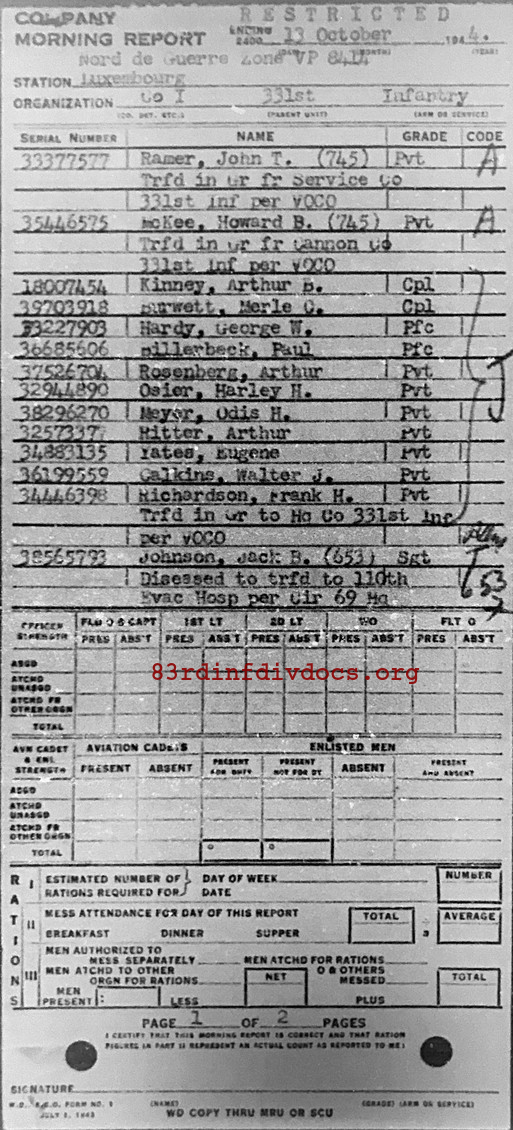 RESTRICTED
COMPANY
MORNING REPORT ENDING 2400 13 October 1944.
(DAY) (MONTH) (YEAR)
Nord de Guerre Zone VP 8414
STATION Luxembourg
ORGANIZATION Co I 331st Infantry
(CO. DET. ETC.) (PARENT UNIT) (ARM OR SERVICE)
SERIAL NUMBER NAME GRADE CODE
33377577 Ramer, John T. (745) Pvt A
Trfd in Gr fr Service Co
331st Inf per VOCO
35446575 McKee, Howard B. (745) Pvt A
Trfd in Gr fr Cannon Co
331st Inf per VOCO
18007454 Kinney, Arthur B. Cpl
39703918 Burwett, Merle C. Cpl
33227903 Hardy, George W. Pfc
36685606 Billerbeck, Paul Pfc
37526704 Rosenberg, Arthur Pvt J
32944890 Osier, Harley H. Pvt
38296270 Meyer, Odis H. Pvt
3257337 Ritter, Arthur Pvt
34883135 Yates, Eugene Pvt
36199559 Calkins, Walter J. Pvt
34446398 Richardson, Frank H. Pvt
Trfd in Gr to Hq Co 331st Inf
per VOCO
38565793 Johnson, Jack B. (653) Sgt
Diseased to trfd to 110th 653
Evac Hosp per Cir 69 Hq
OFFICER STRENGTH FLD O & CAPT 1ST LT 2D LT WO FLT O
PRES ABS'T PRES ABS'T PRES ABS'T PRES ABS'T PRES ABS'T
ASGD
ATCHD UNASGD
ATCHD FR OTHER ORGN
TOTAL
83rdinfdivdocs.org
AVN CADET & ENL STRENGTH AVIATION CADETS ENLISTED MEN
PRESENT ABSENT PRESENT FOR DUTY PRESENT NOT FOR DY ABSENT PRESENT AND ABSENT
ASGD
ATCHD UNASGD
ATCHD FR OTHER ORGN
TOTAL
RATIONS
I ESTIMATED NUMBER OF RATIONS REQUIRED FOR DAY OF WEEK DATE NUMBER
II MESS ATTENDANCE FOR DAY OF THIS REPORT TOTAL ÷ AVERAGE
BREAKFAST DINNER SUPPER 3
III MEN AUTHORIZED TO MESS SEPARATELY MEN ATCHD FOR RATIONS
MEN ATCHD TO OTHER ORGN FOR RATIONS NET O & OTHERS MESSED TOTAL
MEN PRESENT: LESS PLUS
PAGE 1 OF 2 PAGES
I CERTIFY THAT THIS MORNING REPORT IS CORRECT AND THAT RATION
FIGURES IN PART II REPRESENT AN ACTUAL COUNT AS REPORTED TO ME:
SIGNATURE
(NAME) (GRADE) (ARM OR SERVICE)
W.D., A.G.O. FORM NO. 1
JULY 1, 1943 WD COPY THRU MRU OR SCU